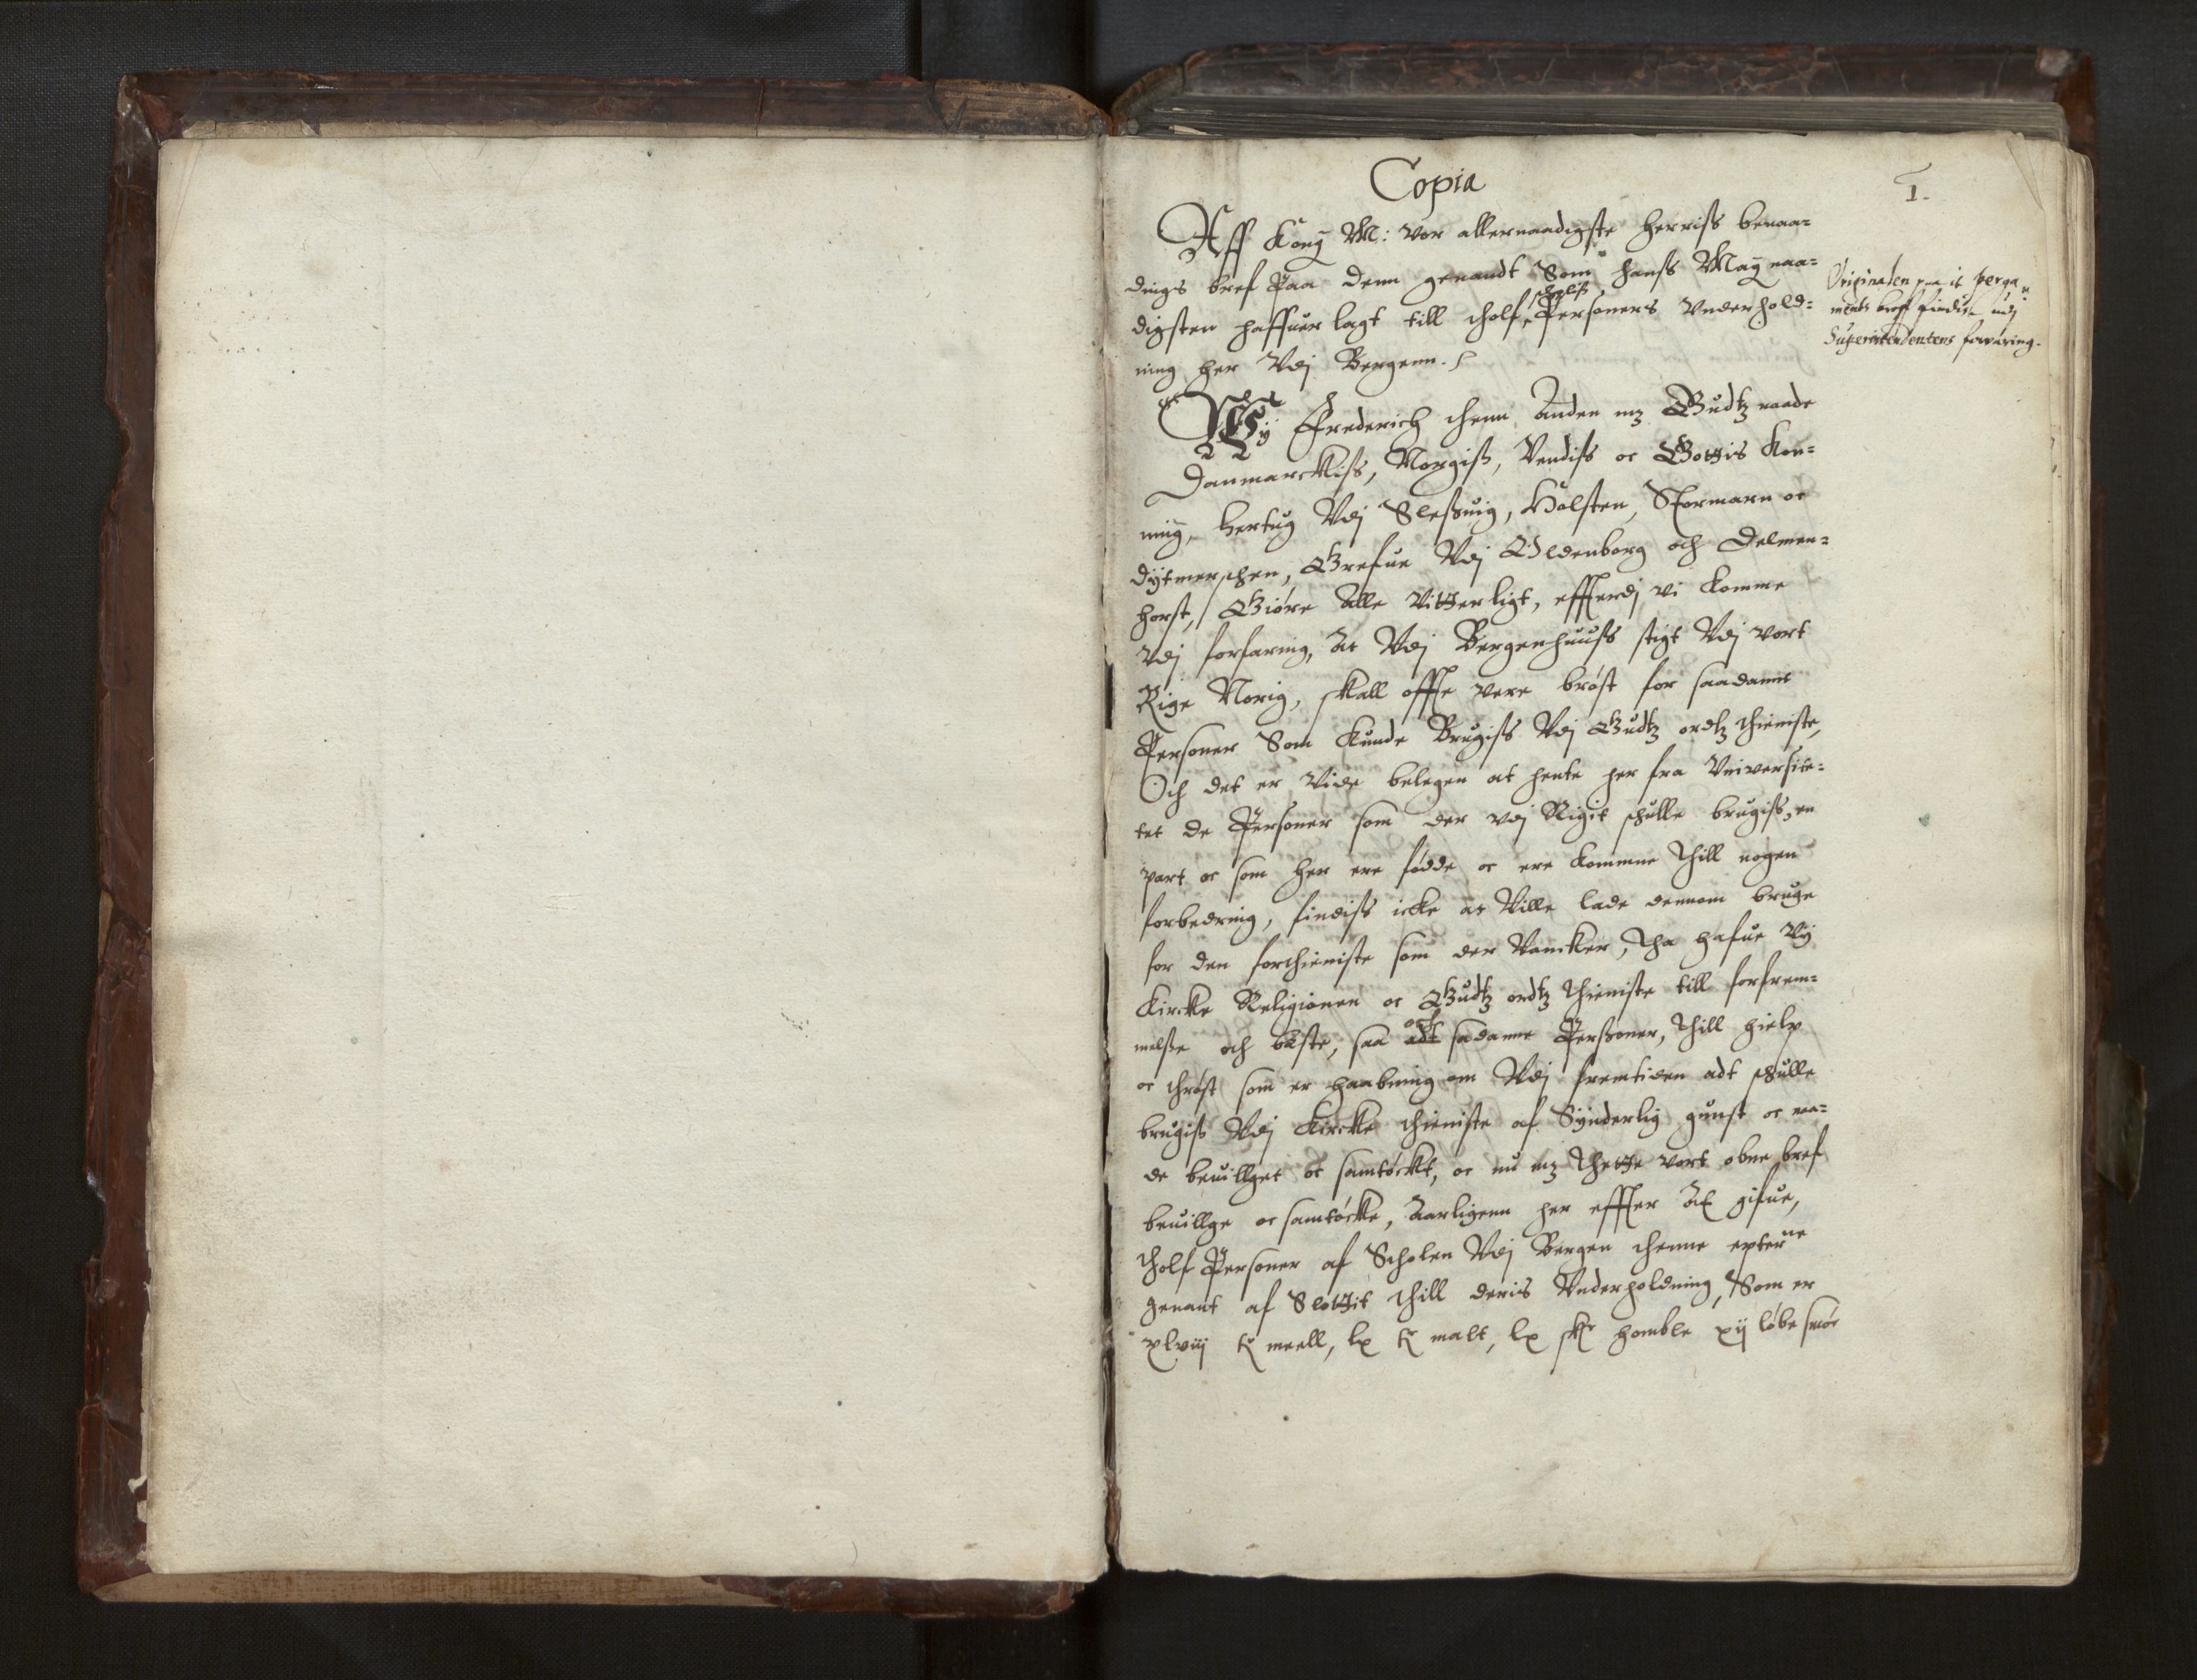 Copia
1.
Aff Kong M: vor allernaadigste herriss benaa-
dings bref Paa denn genandt Som hanss May naa-
digsten haffuer lagt till tholf Personers Vnderhold-
ning her Vdj Bergenn.
Originalen paa it perga-
ments breff findis udj
Superintendentens forvaring.
Wy Frederich thenn Anden mz Gudtz naade
Danmarckiss, Norgiss, Vendiss oc Gottis Kon-
ning, Hertug Vdj Slessuig, Holsten, Stormarn oc
Dytmerschen, Grefue Vdj Oldenborg och Delmen-
horst, Giøre Alle Vitterligt, effterdj vi komme
Vdj forfaring, At Vdj Bergenhuuss stigt Vdj vort
Rige Norig, skall offte vere brøst for saadanne
Personer Som kunde Brugiss Vdj Gudtz ordtz thieniste,
Och det er Vide belegen at hente her fra Vniversite-
tet de Personer som der vdj Rigit schulle brugiss, en
part oc som her ere fødde oc ere komne thill nogen
forbedring, findiss icke at Ville lade dennom bruge
for den forthieniste som der Vancker, Tha hafue Vij
Kircke Religionen oc Gudtz ordtz thieniste till forfrem-
melse och beste, saa adt och sadanne Personer, thill hielp
oc thrøst som er haabning om Vdj fremtiden adt schulle
brugiss Vdj Kircke thieniste af Synderlig gunst oc naa-
de beuillget oc samtøckt, oc nu mz thette vort obne bref
beuillge oc samtøcke, Aarligenn her effter At gifue,
tholf Personer af Scholen Vdj Bergen thenne epterne
genant af Slottit thill deris Vnderholdning, Som er
xlviij meell, lx malt, lx homble xij løbe smør